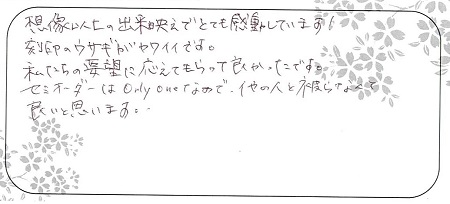 想像以上の出来映えでとても感動しています！
刻印のウサギがカワイイです。
私たちの要望に応えてもらって良かったです。
セミオーダーはOnly oneなので、他の人と被らなくて
良いと思います。